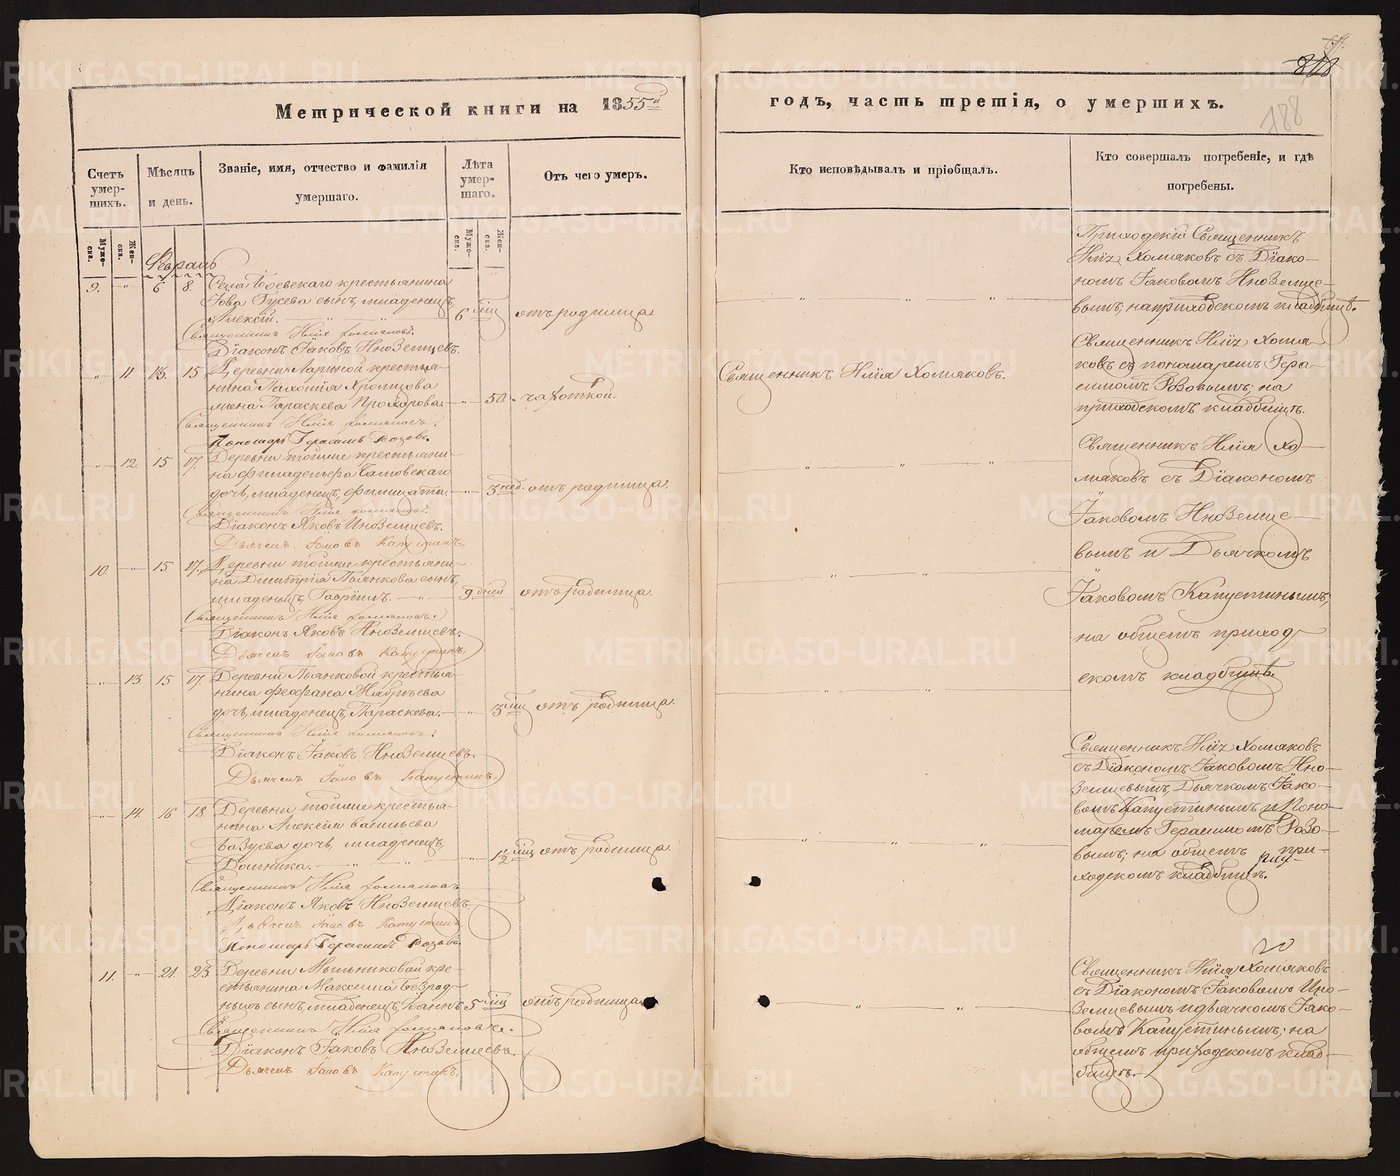 Метрической книги на 1855й
годъ, часть третія, о умершихъ.
188
Счетъ умер-
шихъ.
Мѣсяцъ
и день.
Званіе, имя, отчество и фамилія
умершаго.
Лѣта
умер-
шаго.
Отъ чего умеръ.
Кто исповѣдывалъ и пріобщалъ.
Кто совершалъ погребеніе, и гдѣ
погребены.
Муже-
ска.
Жен-
ска.
Муже-
ска.
Жен-
ска.
Февраль
9. " 6 8. Села крестьянина
Іова Гусева сынъ, младенецъ
Алексій. 6 мцъ отъ родимца.
Священникъ Илія Хомяковъ.
Діаконъ Іаковъ Иноземцевъ.
Приходскій Священникъ
Иліа Хомяковъ съ Діако-
номъ Іаковомъ Иноземце-
вымъ, на приходскомъ кладбищѣ.
" 11 13. 15 Деревни Лариной крестья-
нина
жена Параскева Прохорова. " 50. чахоткой.
Священникъ Илія Хомяковъ.
Пономарь Герасимъ Розовъ.
Священникъ Илія Хомяковъ.
Священникъ Иліа Хомя-
ковъ съ пономаремъ Гера-
симомъ Розовымъ, на
приходскомъ кладбищѣ.
" 12. 15 17. Деревни тойже крестьяни-
на
дочь, младенецъ " 3 нед. отъ родимца.
Священникъ Илія Хомяковъ.
Діаконъ Яковъ Иноземцевъ.
Дьячекъ Іаковъ Капустинъ.
Священникъ Илія Хо-
мяковъ съ Діакономъ
Іаковомъ Иноземце-
вымъ и Дьячкомъ
Іаковомъ Капустинымъ,
на общемъ приход-
скомъ кладбищѣ.
10. " 15 17. Деревни тойже крестьяни-
на Дмитрія Пьянкова сынъ,
младенецъ, Гавріилъ. 9 дней отъ родимца.
Священникъ Илія Хомяковъ.
Діаконъ Яковъ Иноземцевъ.
Дьячекъ Іаковъ Капустинъ.
" 13 15 17. Деревни Пьянковой крестья-
нина
дочь, младенецъ, Параскева. " 3 мцъ отъ родимца.
Священникъ Илія Хомяковъ.
Діаконъ Іаковъ Иноземцевъ.
Дьячекъ Іаковъ Капустинъ.
" 14. 16 18. Деревни тойже крестья-
нина Алексія Васильева
дочь, младенецъ,
Домника. " 1½ мцъ отъ родимца.
Священникъ Илія Хомяковъ
Діаконъ Яковъ Иноземцевъ.
Дьячекъ Іаковъ Капустинъ
Пономарь Герасимъ Розовъ.
Священникъ Иліа Хомяковъ
съ Діакономъ Іаковомъ Ино-
земцевымъ, Дьячкомъ Іако-
вомъ Капустинымъ и Поно-
маремъ Герасимомъ Розо-
вымъ; на общемъ при-
ходскомъ кладбищѣ.
11. " 21 23 Деревни Мыльниковой кре-
стьянина Максима
сынъ, младенецъ Іоаннъ 5 мцъ отъ родимца.
Священникъ Илія Хомяковъ.
Діаконъ Іаковъ Иноземцевъ.
Дьячекъ Іаковъ Капустинъ.
Священникъ Илія Хомяковъ
съ Діакономъ Іаковомъ Ино-
земцевымъ и дьячкомъ Іако-
вомъ Капустинымъ; на
общемъ приходскомъ клад-
бищѣ.
METRIKI.GASO-URAL.RU